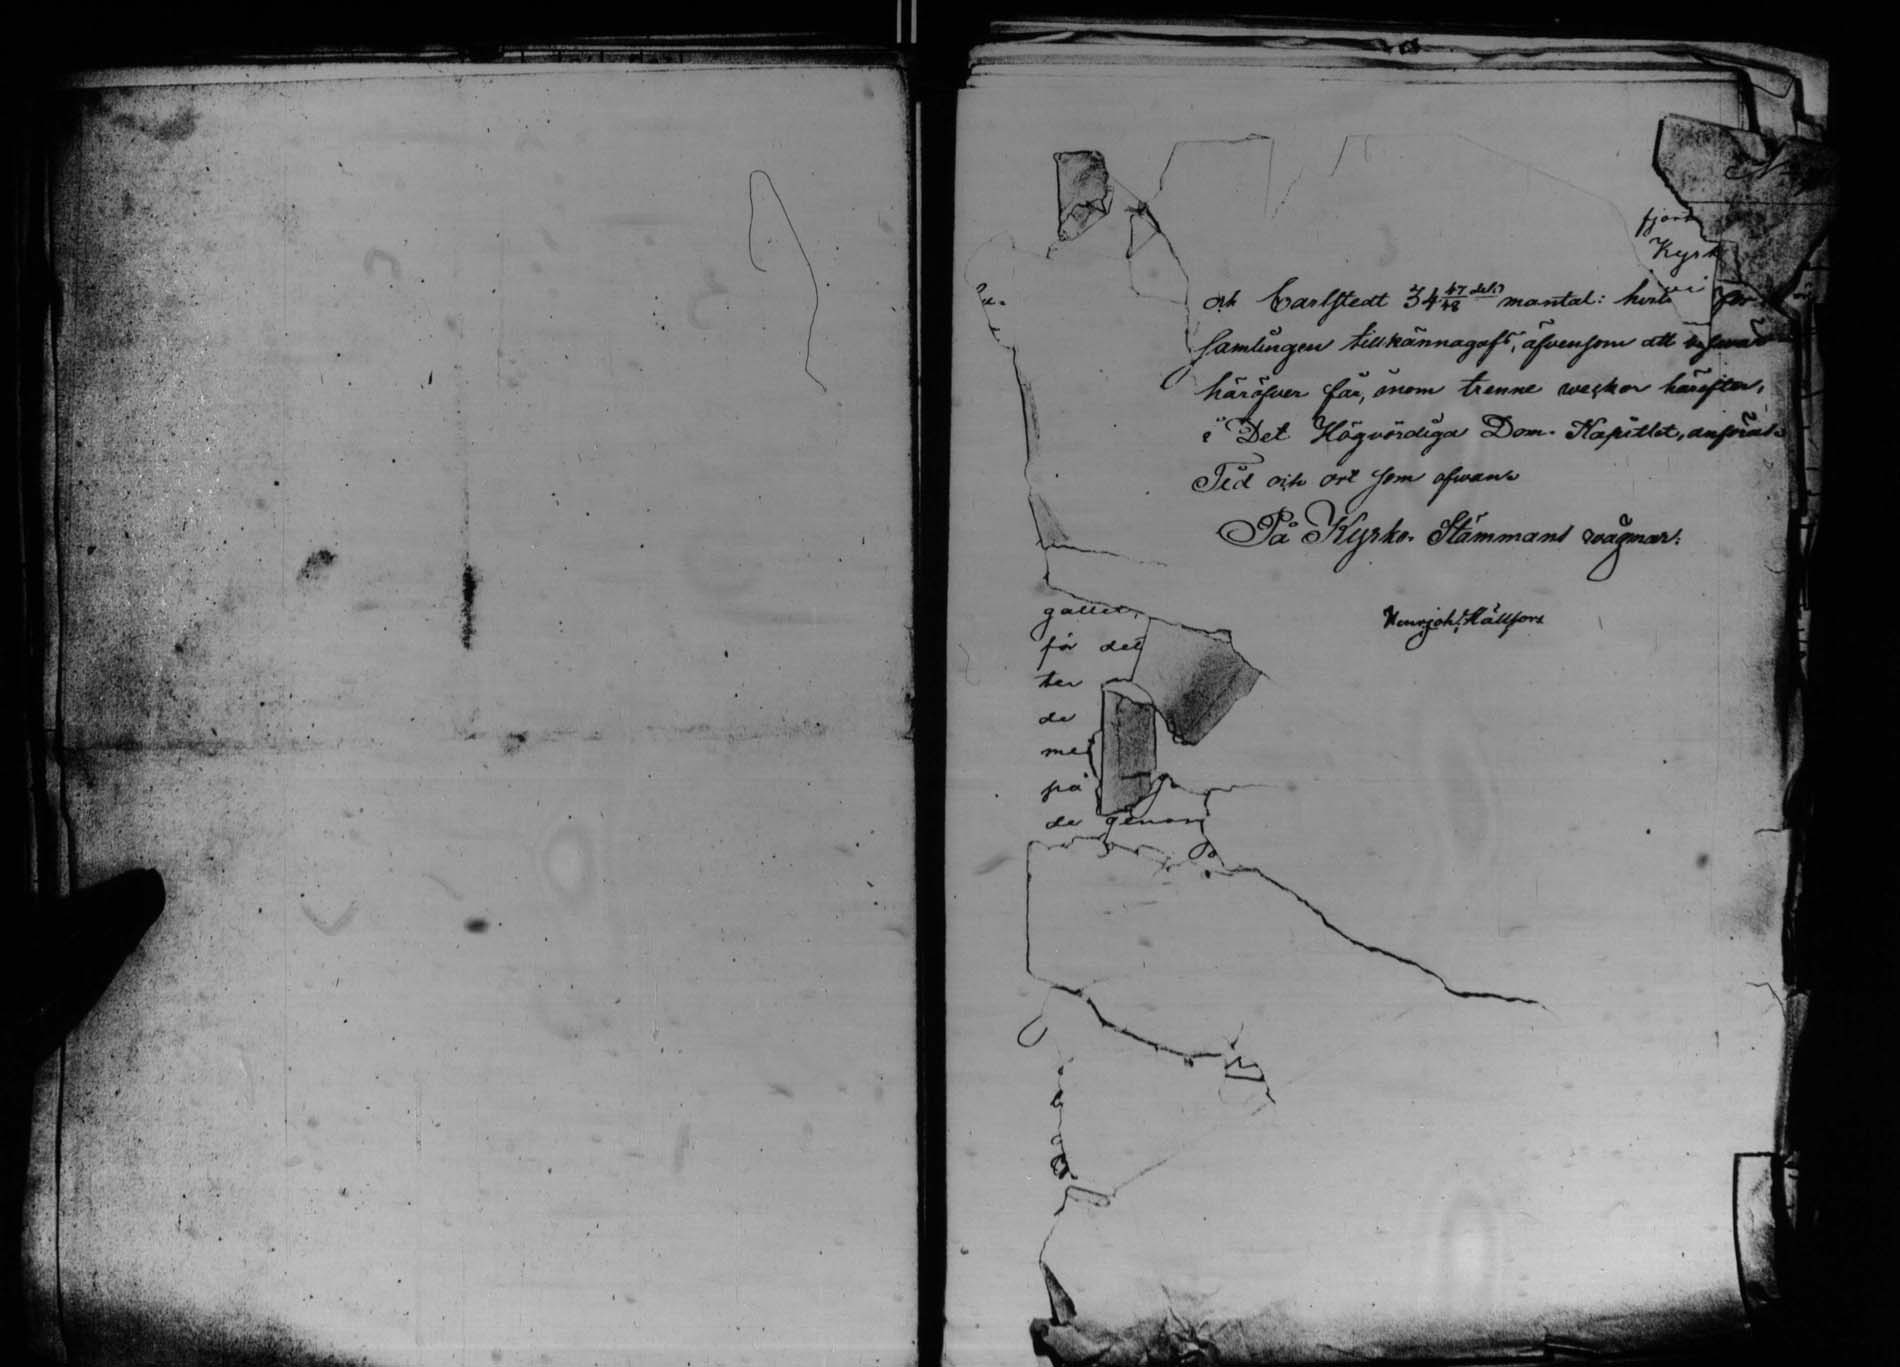 fjor
Kyrk
och Carlstedt 34 47/48 del: mantal: hvilk för
samlingen tillkännagafs, äfvensom att besvär
häröfver får, inom trenne veckor härefter,
i Det Högvördiga Dom-Kapitlet, anföras.
Tid och ort som ofvan.
På Kyrko-Stämmans vägnar:
Hällfors
gallet,
för det
ter
de
me
på
de genom